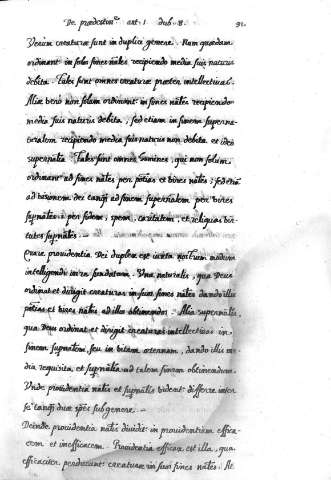 De prædestin.e art. 1 dub. 8. 91.
Verum creaturæ sunt in duplici genere. Nam quædam
ordinant in solos fines nāles recipiendo media suis naturis
debita. Tales sunt omnes creaturæ præter intellectivas.
Aliæ vero non solum ordinant in fines nāles recipiendo
media suis naturis debita, sed etiam in finem superna-
turalem recipiendo media suis naturis non debita et ideo
supernālia. Tales sunt omnes homines, qui non solum
ordinant ad fines nāles per potias et vires nāles: sed etiā
ad visionem Dei tanq̄ ad finem supernalem per vires
supnāles: per fidem, spem, caritatem, et reliquas vir-
tutes supnāles.
Quare providentia Dei duplex est iuxta nostrum modum
intelligendi in re fundatum. Una naturalis, qua Deus
ordinat et dirigit creaturas in suos fines nāles dando illis
potias et vires nāles ad illos obtinendos. Alia supernālis,
qua Deus ordinat et dirigit creaturas intellectivas in
finem supnālem, seu in vitam æternam, dando illis me-
dia requisita et supnālia ad talem finem obtinendum.
Unde providentia nālis et supnālis vident differre inter
se tanq̄ duæ spēs sub genere.
Deinde providentia nālis dividit in providentiam effica-
cem et inefficacem. Providentia efficax est illa, qua
efficaciter perducunt creaturæ in suos fines nāles. At